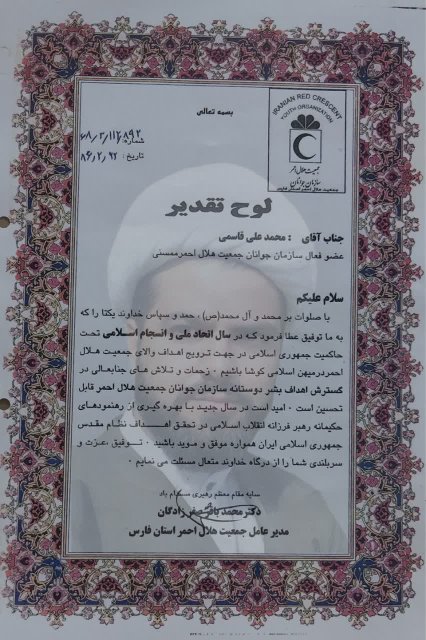 بسمه تعالی
IRANIAN RED CRESCENT
YOUTH ORGANIZATION
جمعیت هلال احمر
سازمان جوانان
جمعیت هلال احمر استان فارس
شماره:
تاریخ :
لوح تقدیر
جناب آقای : محمد علی قاسمی
عضو فعال سازمان جوانان جمعیت هلال احمرممسنی
سلام علیکم
با صلوات بر محمد و آل محمد(ص) ، حمد و سپاس خداوند یکتا را که
به ما توفیق عطا فرمود که در سال اتحاد ملی و انسجام اسلامی تحت
حاکمیت جمهوری اسلامی در جهت ترویج اهداف والای جمعیت هلال
احمردرمیهن اسلامی کوشا باشیم . زحمات و تلاش های جنابعالی در
گسترش اهداف بشر دوستانه سازمان جوانان جمعیت هلال احمر قابل
تحسین است . امید است در سال جدید با بهره گیری از رهنمودهای
حکیمانه رهبر فرزانه انقلاب اسلامی در تحقق اهداف نظام مقدس
جمهوری اسلامی ایران همواره موفق و موید باشید . توفیق ،عزت و
سربلندی شما را از درگاه خداوند متعال مسئلت می نمایم .
سایه مقام معظم رهبری مستدام باد
دکتر محمد باقر صفر زادگان
مدیر عامل جمعیت هلال احمر استان فارس